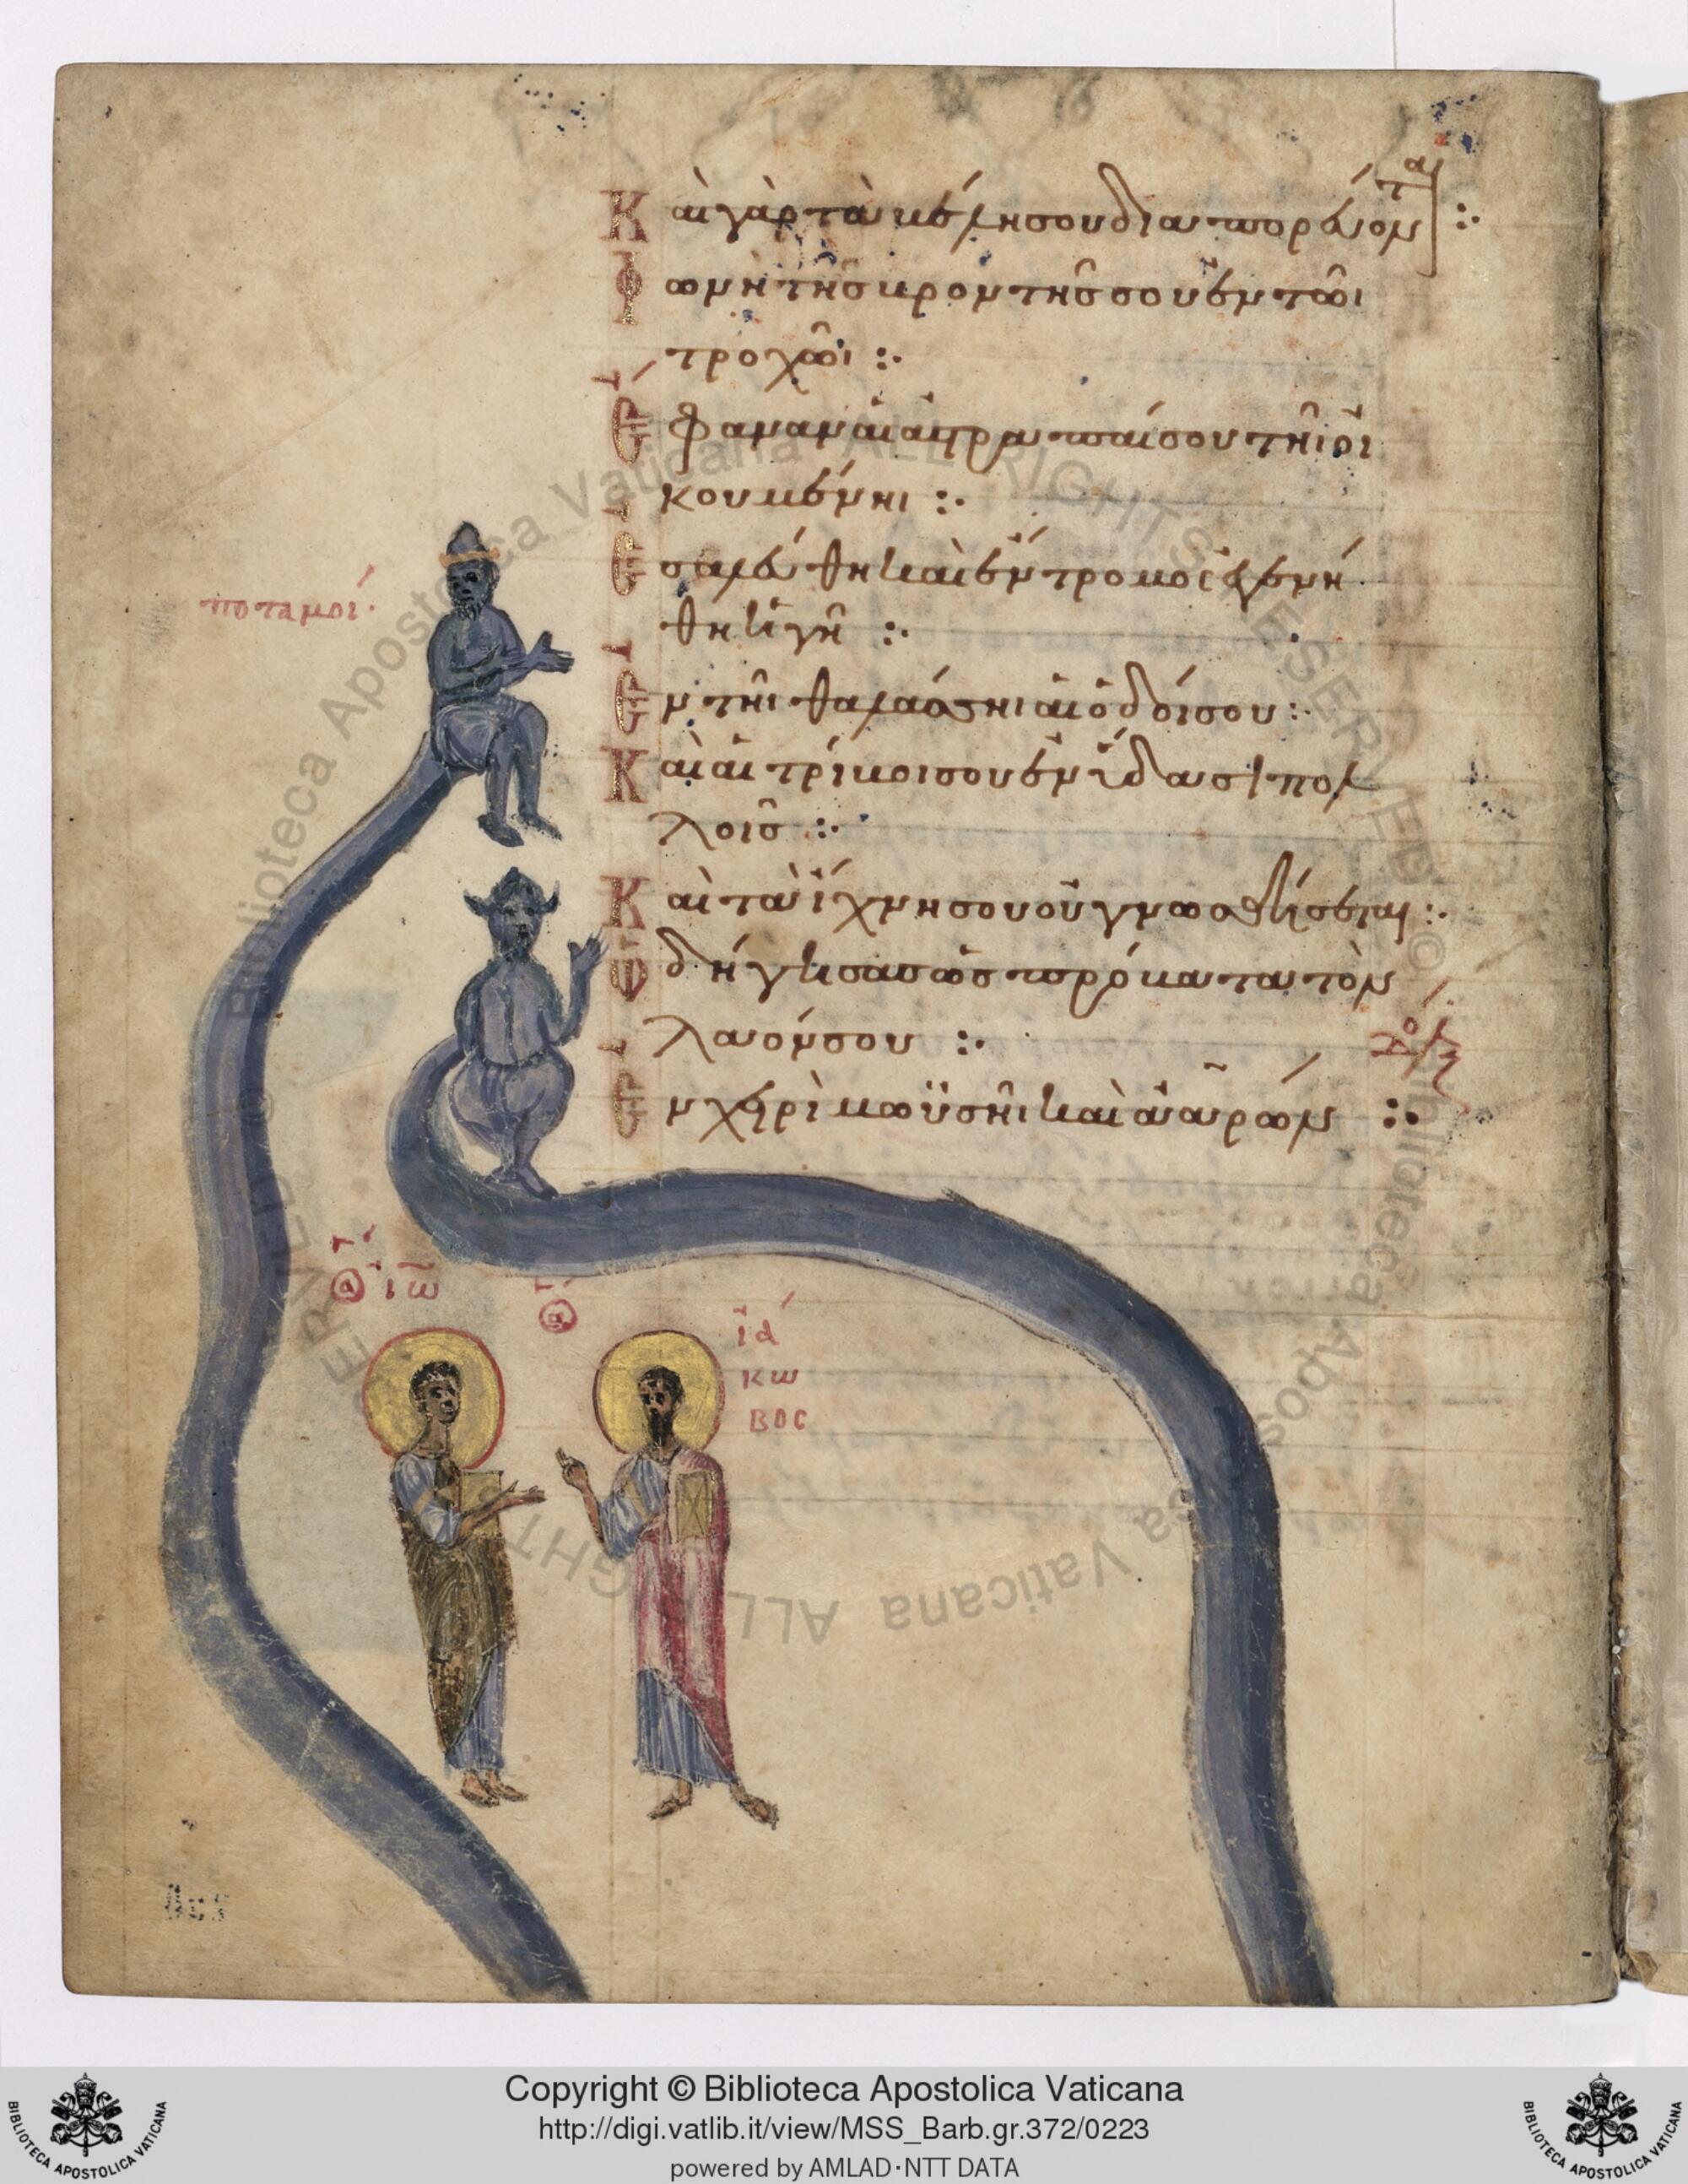 Καὶ γὰρ τὰ βέλη σου διαπορεύοντα]:·
Φωνὴ τῆς βροντῆς σου ἐν τῶι
τροχῶι :·
Ἔφαναν αἱ ἀστραπαί σου τῆι οἰ
κουμένηι :·
Ἐσαλεύθη καὶ ἔντρομος ἐγενή
θη ἡ γῆ :·
Ἐν τῆι θαλάσσηι αἱ ὁδοί σου :·
Καὶ αἱ τρίβοι σου ἐν ὕδασι πολ
λοῖς :·
Καὶ τὰ ἴχνη σου οὐ γνωσθήσεται :·
Ὡδήγησας ὡς πρόβατα τὸν
λαόν σου :·
Ἐν χειρὶ μωϋσῆι καὶ ἀαρών :·
ποταμοί·
ὁ ἅ ἰω
ὁ ἅ
ἰά
κω
βος
Copyright © Biblioteca Apostolica Vaticana
http://digi.vatlib.it/view/MSS_Barb.gr.372/0223
powered by AMLAD·NTT DATA
BIBLIOTECA APOSTOLICA VATICANA
BIBLIOTECA APOSTOLICA VATICANA